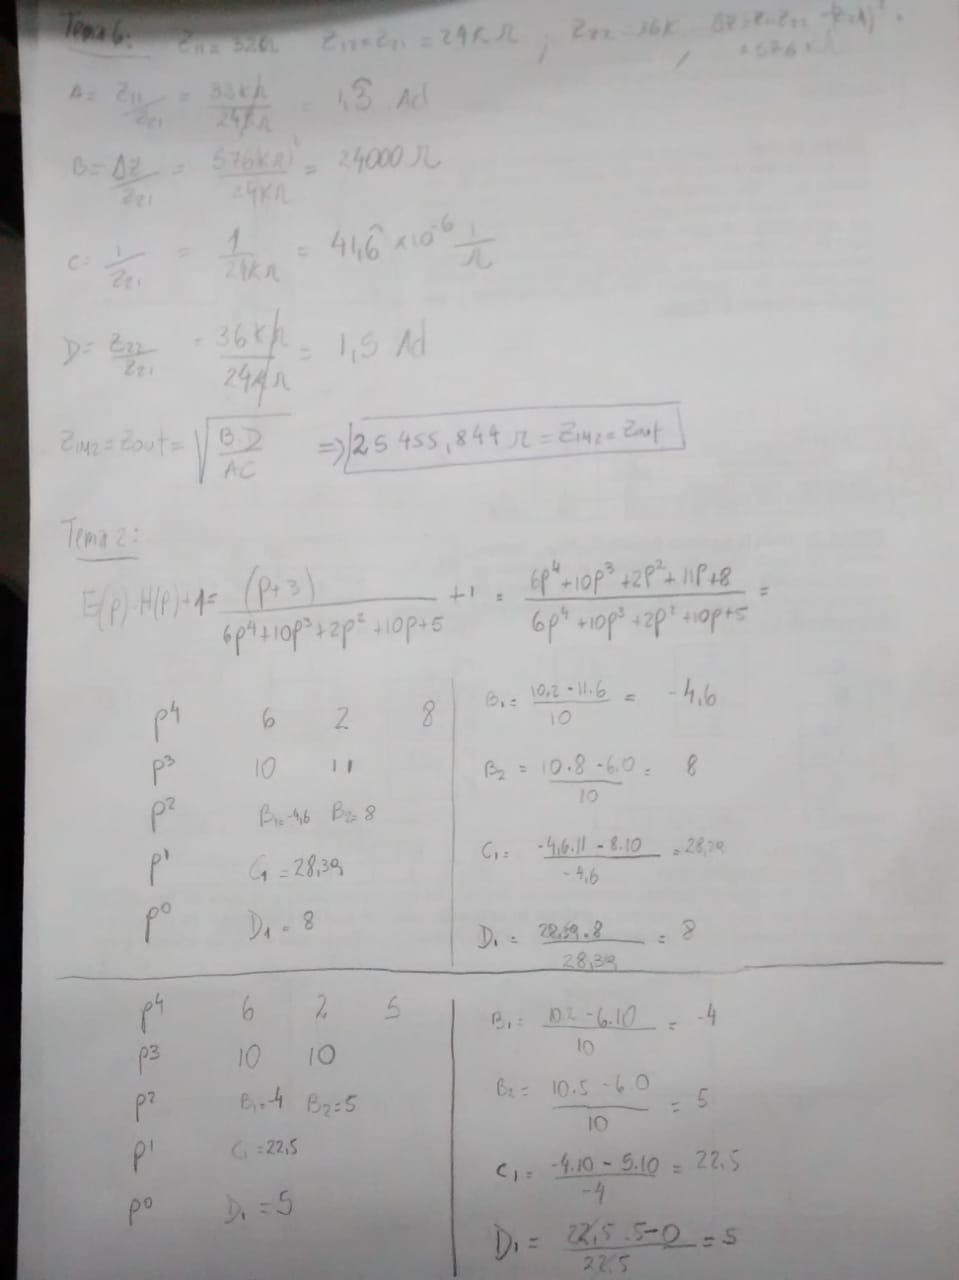 Tema 6: Z11 = 32k Z12=Z21 = 24KΩ ; Z22 = 36K ,
A= Z11/Z21 = 32KΩ/24KΩ = 1,3̂ Ad
B= ΔZ/Z21 = 576KΩ²/24KΩ = 24000 Ω
C= 1/Z21 = 1/24KΩ = 41,6̂ ×10^-6 1/Ω
D= Z22/Z21 = 36KΩ/24KΩ = 1,5 Ad
ZIM2=Zout= √(B.D/AC) ⇒ 25 455,844 Ω = ZIM2 = Zout
Tema 2:
E(p).H(p)+1= (P+3)/(6p⁴+10p³+2p²+10p+5) +1 = (6p⁴+10p³+2p²+11p+8)/(6p⁴+10p³+2p²+10p+5) =
p⁴ 6 2 8
p³ 10 11
p² B1=-4,6 B2=8
p¹ C1 = 28,39
p⁰ D1 = 8
B1= (10.2-11.6)/10 = -4,6
B2 = (10.8-6.0)/10 = 8
C1= (-4,6.11-8.10)/-4,6 = 28,39
D1 = 28,39.8/28,39 = 8
p⁴ 6 2 5
p³ 10 10
p² B1=-4 B2=5
p¹ C1=22,5
p⁰ D1 = 5
B1= (10.2-6.10)/10 = -4
B2= (10.5-6.0)/10 = 5
C1= (-4.10-5.10)/-4 = 22,5
D1= (22,5.5-0)/22,5 = 5